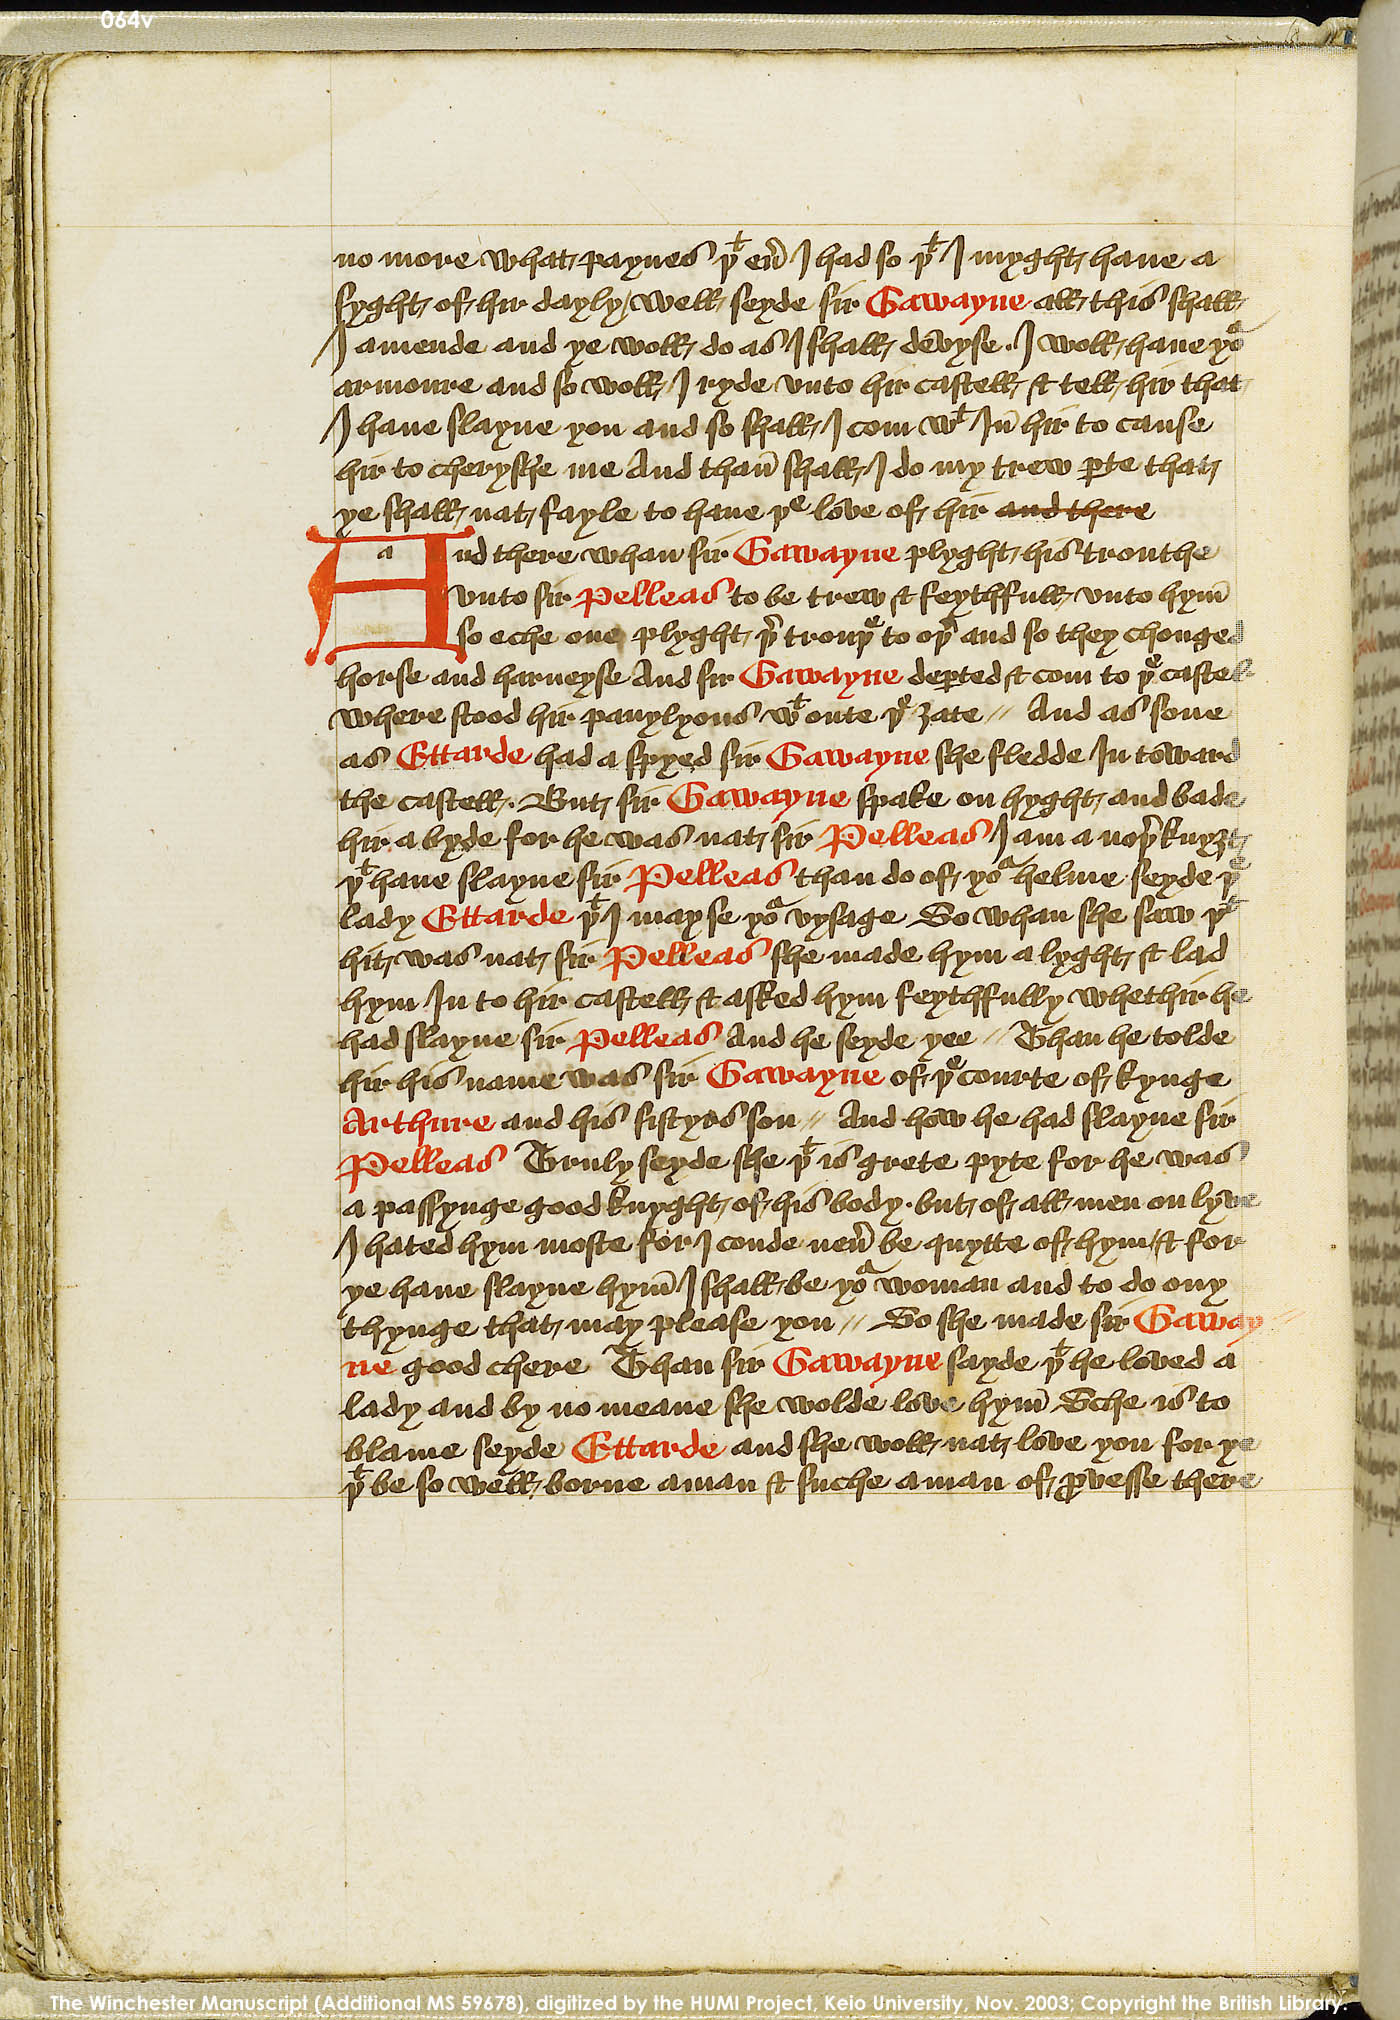 064v
no more what paynes þᵗ eu̅ I had so þᵗ I myght haue a
syght of hir dayly / well seyde sir Gawayne all this shall
I amende and ye woll do as I shall devyse · I woll haue yoᵘ
armoure and so woll I ryde vnto hir castell & tell hir that
I haue slayne you and so shall I com wᵗ In̅ hir to cause
hir to cherysshe me And than̅ shall I do my trew ꝑte that
ye shall nat fayle to haue þᵉ love of hir and there
And there whan sir Gawayne plyght his trouthe
vnto sir Pelleas to be trew & feythfull vnto hym̅
so eche one plyght þʳ trouþᵉ to oþʳ and so they chonged
horse and harneyse And sir Gawayne deꝑted & com to þᵉ castell
where stood hir pauylyons wᵗ oute þᵉ ȝate // And as sone
as Ettarde had a spyed sir Gawayne she fledde In toward
the castell · But sir Gawayne spake on hyght and bade
hir a byde for he was nat sir Pelleas I am a noþʳ knyȝt
þᵗ haue slayne sir Pelleas than do of yoᵘ helme seyde þᵉ
lady Ettarde þᵗ I may se yoᵘ vysage So whan she saw þᵗ
hit was nat sir Pelleas she made hym a lyght & lad
hym In to hir castell & asked hym feythfully whethir he
had slayne sir Pelleas And he seyde yee // Than he tolde
hir his name was sir Gawayne of þᵉ courte of kynge
Arthure and his sistyrs son // And how he had slayne sir
Pelleas Truly seyde she þᵗ is grete pyte for he was
a passynge good knyght of his body · but of all men on lyve
I hated hym moste for I coude neu̅ be quytte of hym / & for
ye haue slayne hym̅ I shall be yoᵘ woman and to do ony
thynge that may please you // So she made sir Gaway
ne good chere Than sir Gawayne sayde þᵗ he loved a
lady and by no meane she wolde love hym̅ Sche is to
blame seyde Ettarde and she woll nat love you for ye
þᵗ be so well borne a man & suche a man of ꝓvesse there
The Winchester Manuscript (Additional MS 59678), digitized by the HUMI Project, Keio University, Nov. 2003; Copyright the British Library.